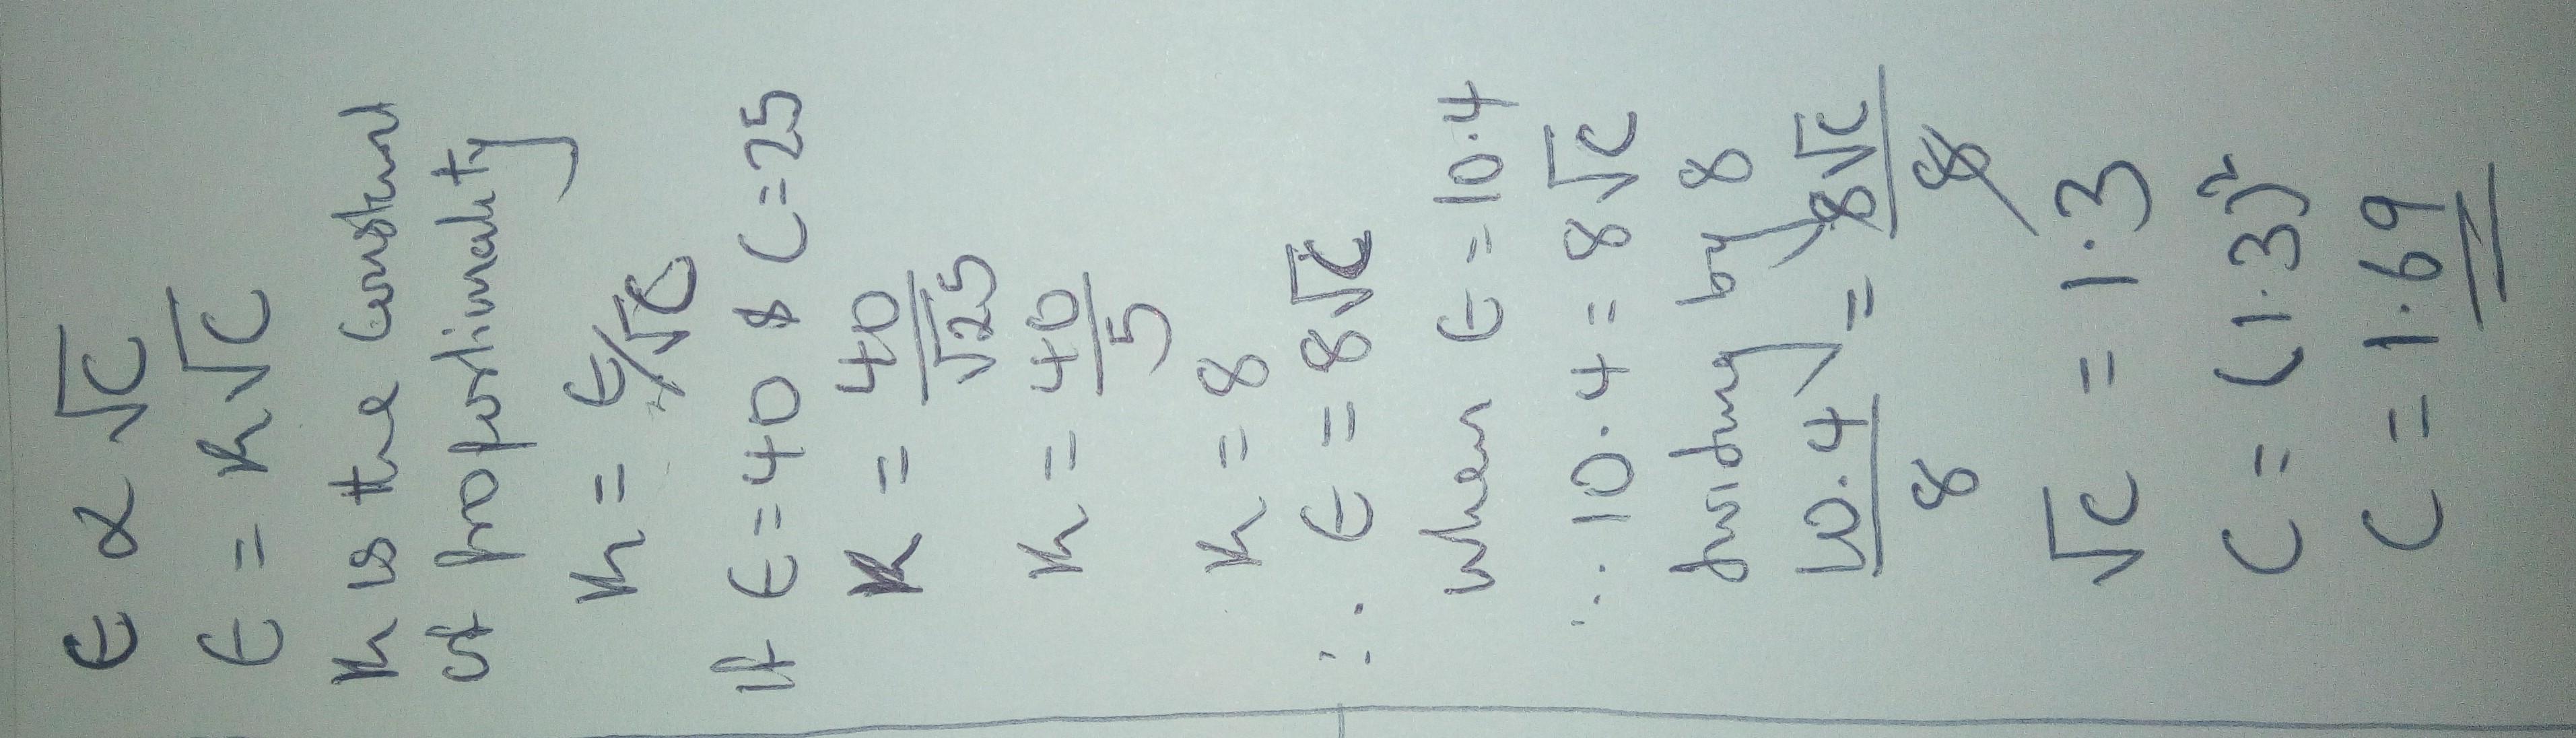 t α √c
t = k√c
k is the constant
of proportionality
k = t/√c
If t = 40 & c = 25
k = 40/√25
k = 40/5
k = 8
∴ t = 8√c
when t = 10.4
∴ 10.4 = 8√c
dividing by 8
10.4/8 = 8√c/8
√c = 1.3
c = (1.3)²
c = 1.69